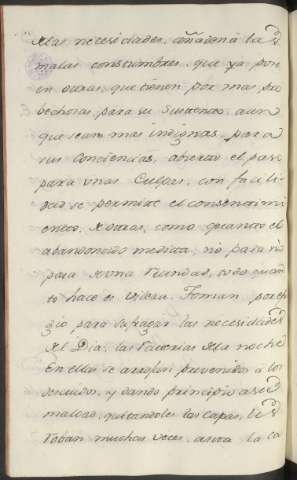 de las necesidades, añaden à las
malas constumbres, que ya pon
en otras, que tienen por mas pro
bechosas para su sustento, aun
que sean mas indignas para
sus Conciencias, abierto el paso
para unas Culpas, con facili
dad se permite el consentimi
ento, à otras, como quando el
abandonado medita, no
para de todo quan
to hace es vileza. Toman, por
para sufragar las necesidades
del Dia, las de la noche
En ella se arrojan prevenidos à los
descuidos, y dando principio à su
maldad, quitandoles las Capas, les
Roban muchas veces, asta la ca